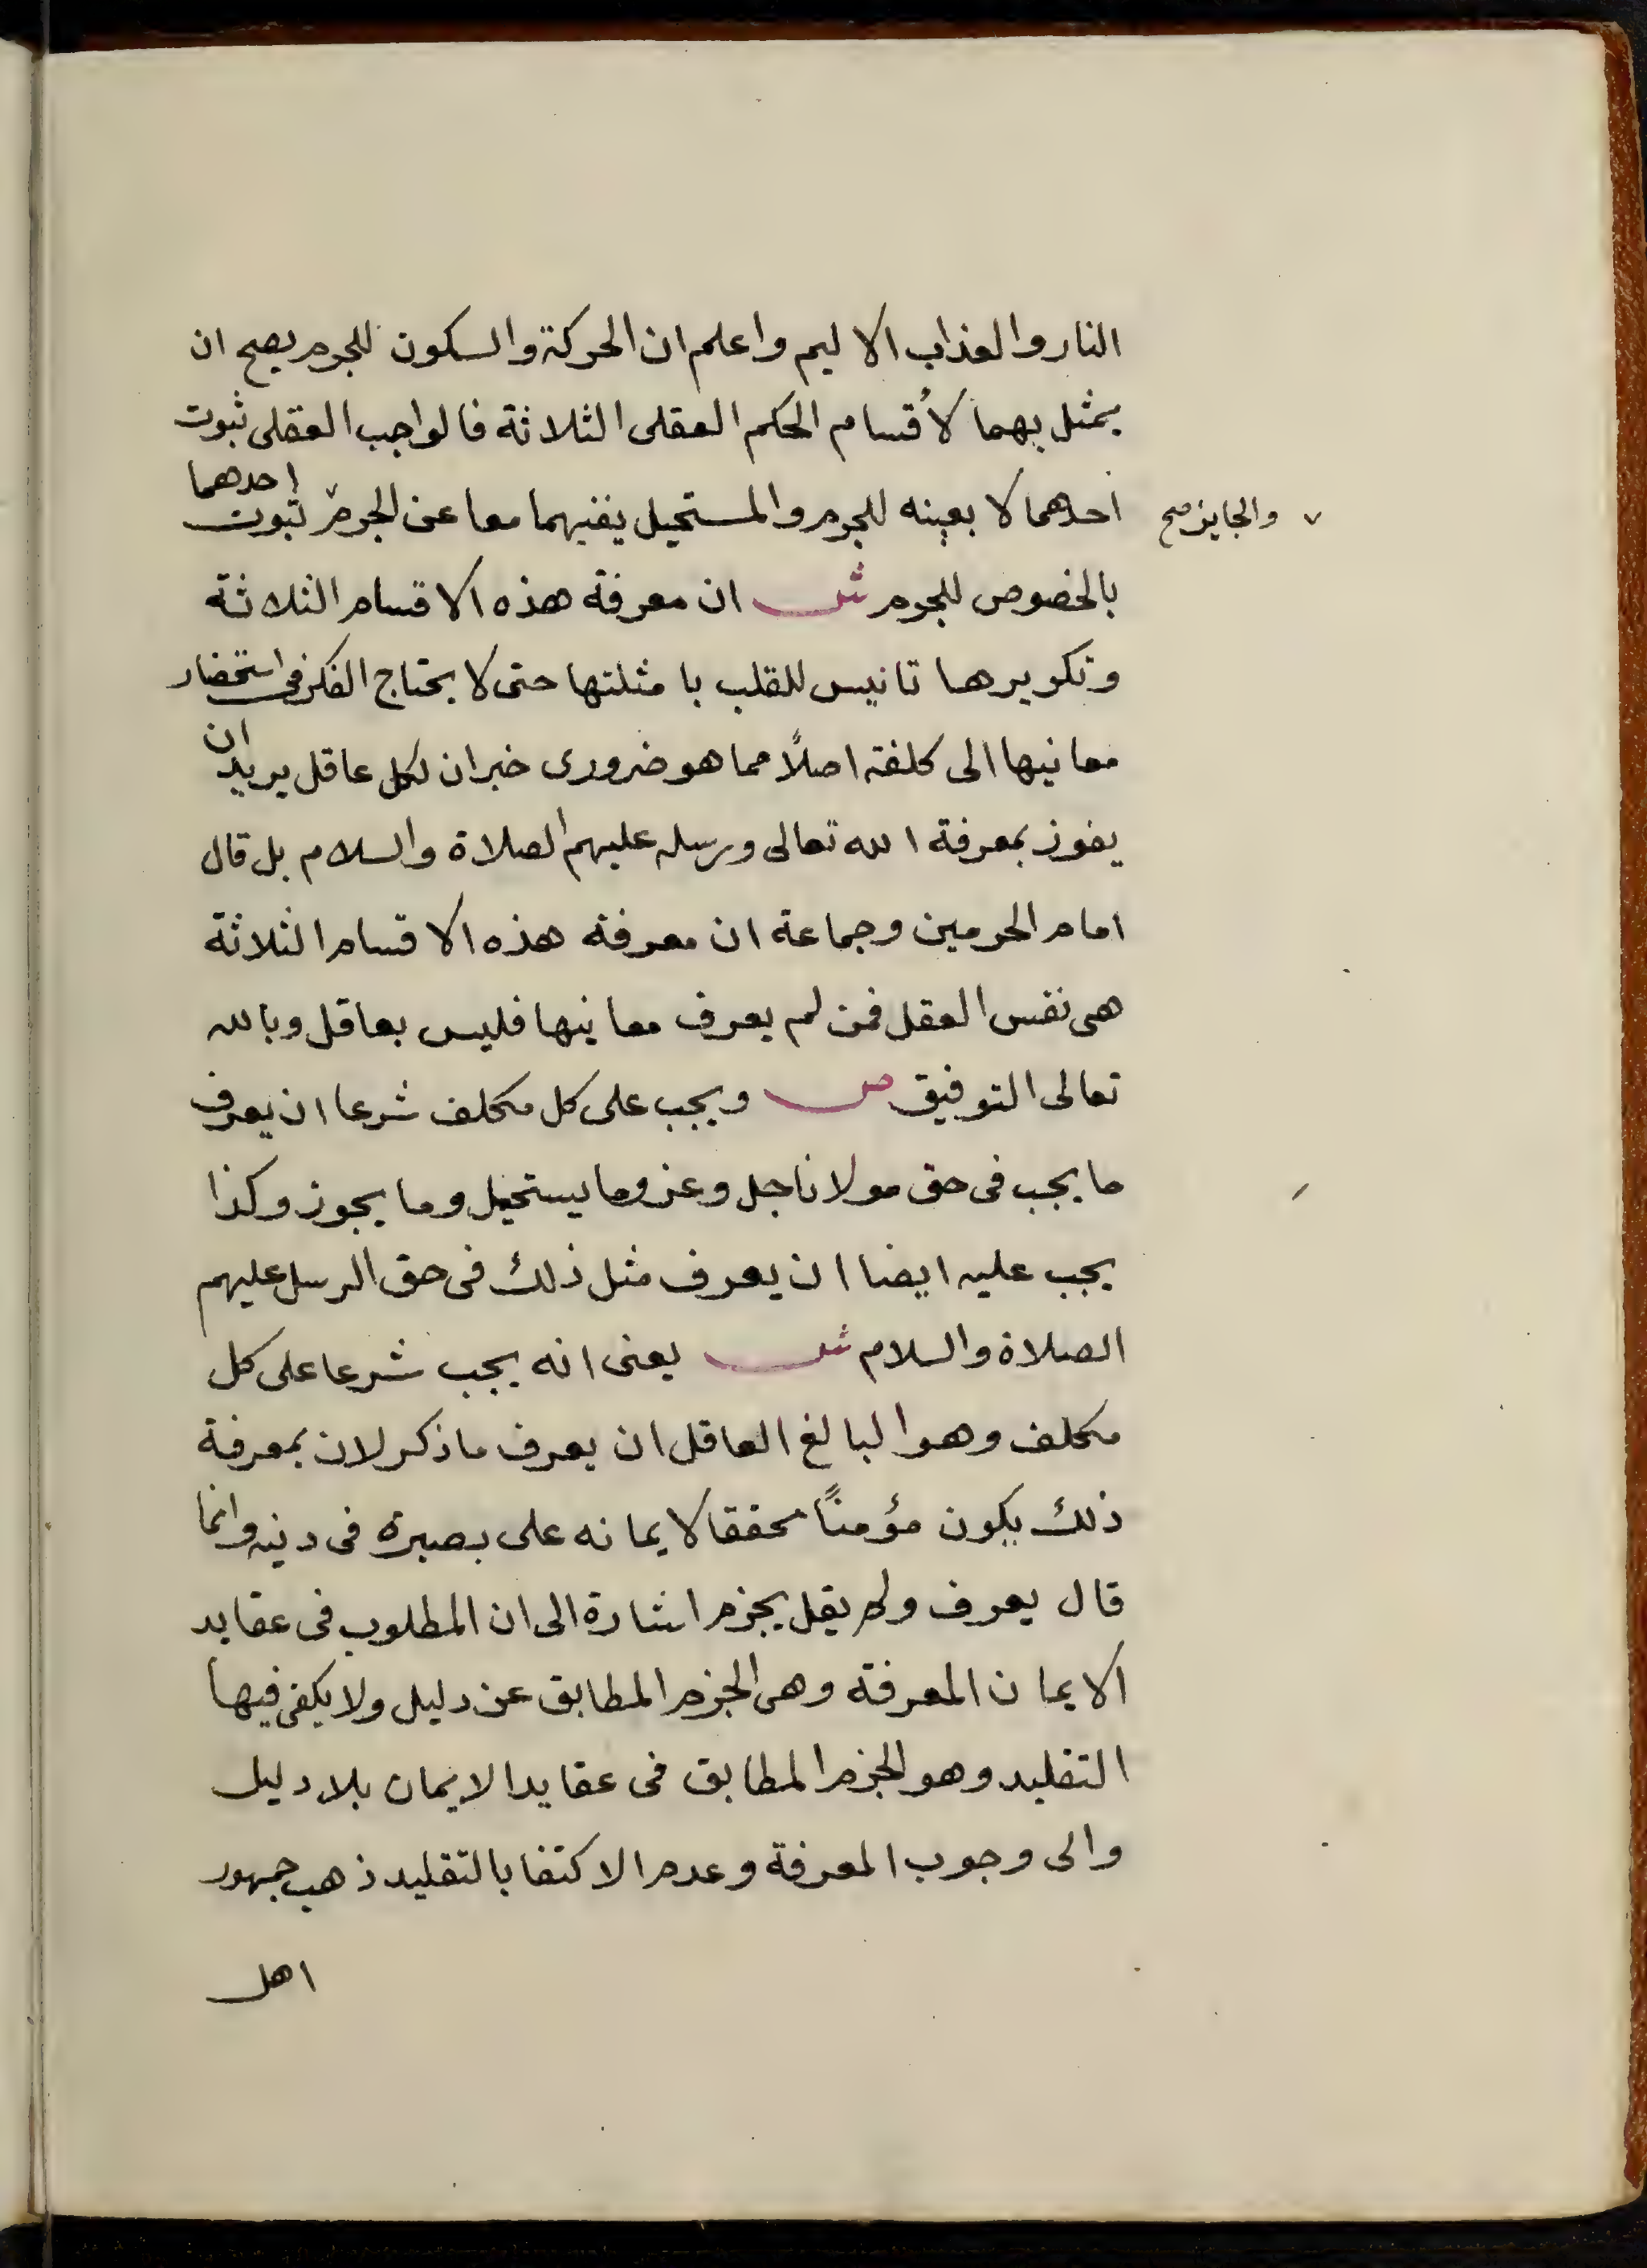 النار والعذاب الاليم واعلم ان الحركة والسكون للجرم يصح ان
يمثل بهما لأقسام الحكم العقلى الثلاثة فالواجب العقلى ثبوت
احدهما لا بعينه للجرم والمستحيل نفيهما معا عن الجرم ٧ ثبوت احدهما
٧ والجايز صح
بالخصوص للجرم ش ان معرفة هذه الاقسام الثلاثة
وتكويرها تانيس للقلب بامثلتها حتى لا يحتاج الفكر فى استحضار
معانيها الى كلفة اصلاً مما هو ضرورى خبر ان لكل عاقل يريد ان
يفوز بمعرفة الله تعالى ورسله عليهم الصلاة والسلام بل قال
امام الحرمين وجماعة ان معرفة هذه الاقسام الثلاثة
هى نفس العقل فمن لم يعرف معانيها فليس بعاقل وبالله
تعالى التوفيق ص ويجب على كل مكلف شرعا ان يعرف
ما يجب فى حق مولانا جل وعز وما يستحيل وما يجوز وكذا
يجب عليه ايضا ان يعرف مثل ذلك فى حق الرسل عليهم
الصلاة والسلام ش يعنى انه يجب شرعا على كل
مكلف وهو البالغ العاقل ان يعرف ما ذكر لان بمعرفة
ذلك يكون مؤمناً محققا لايمانه على بصيرة فى دينه وانما
قال يعرف ولم يقل يجزم اشارة الى ان المطلوب فى عقايد
الايمان المعرفة وهى الجزم المطابق عن دليل ولا يكفى فيها
التقليد وهو الجزم المطابق فى عقايد الايمان بلا دليل
والى وجوب المعرفة وعدم الاكتفا بالتقليد ذهب جمهور
اهل